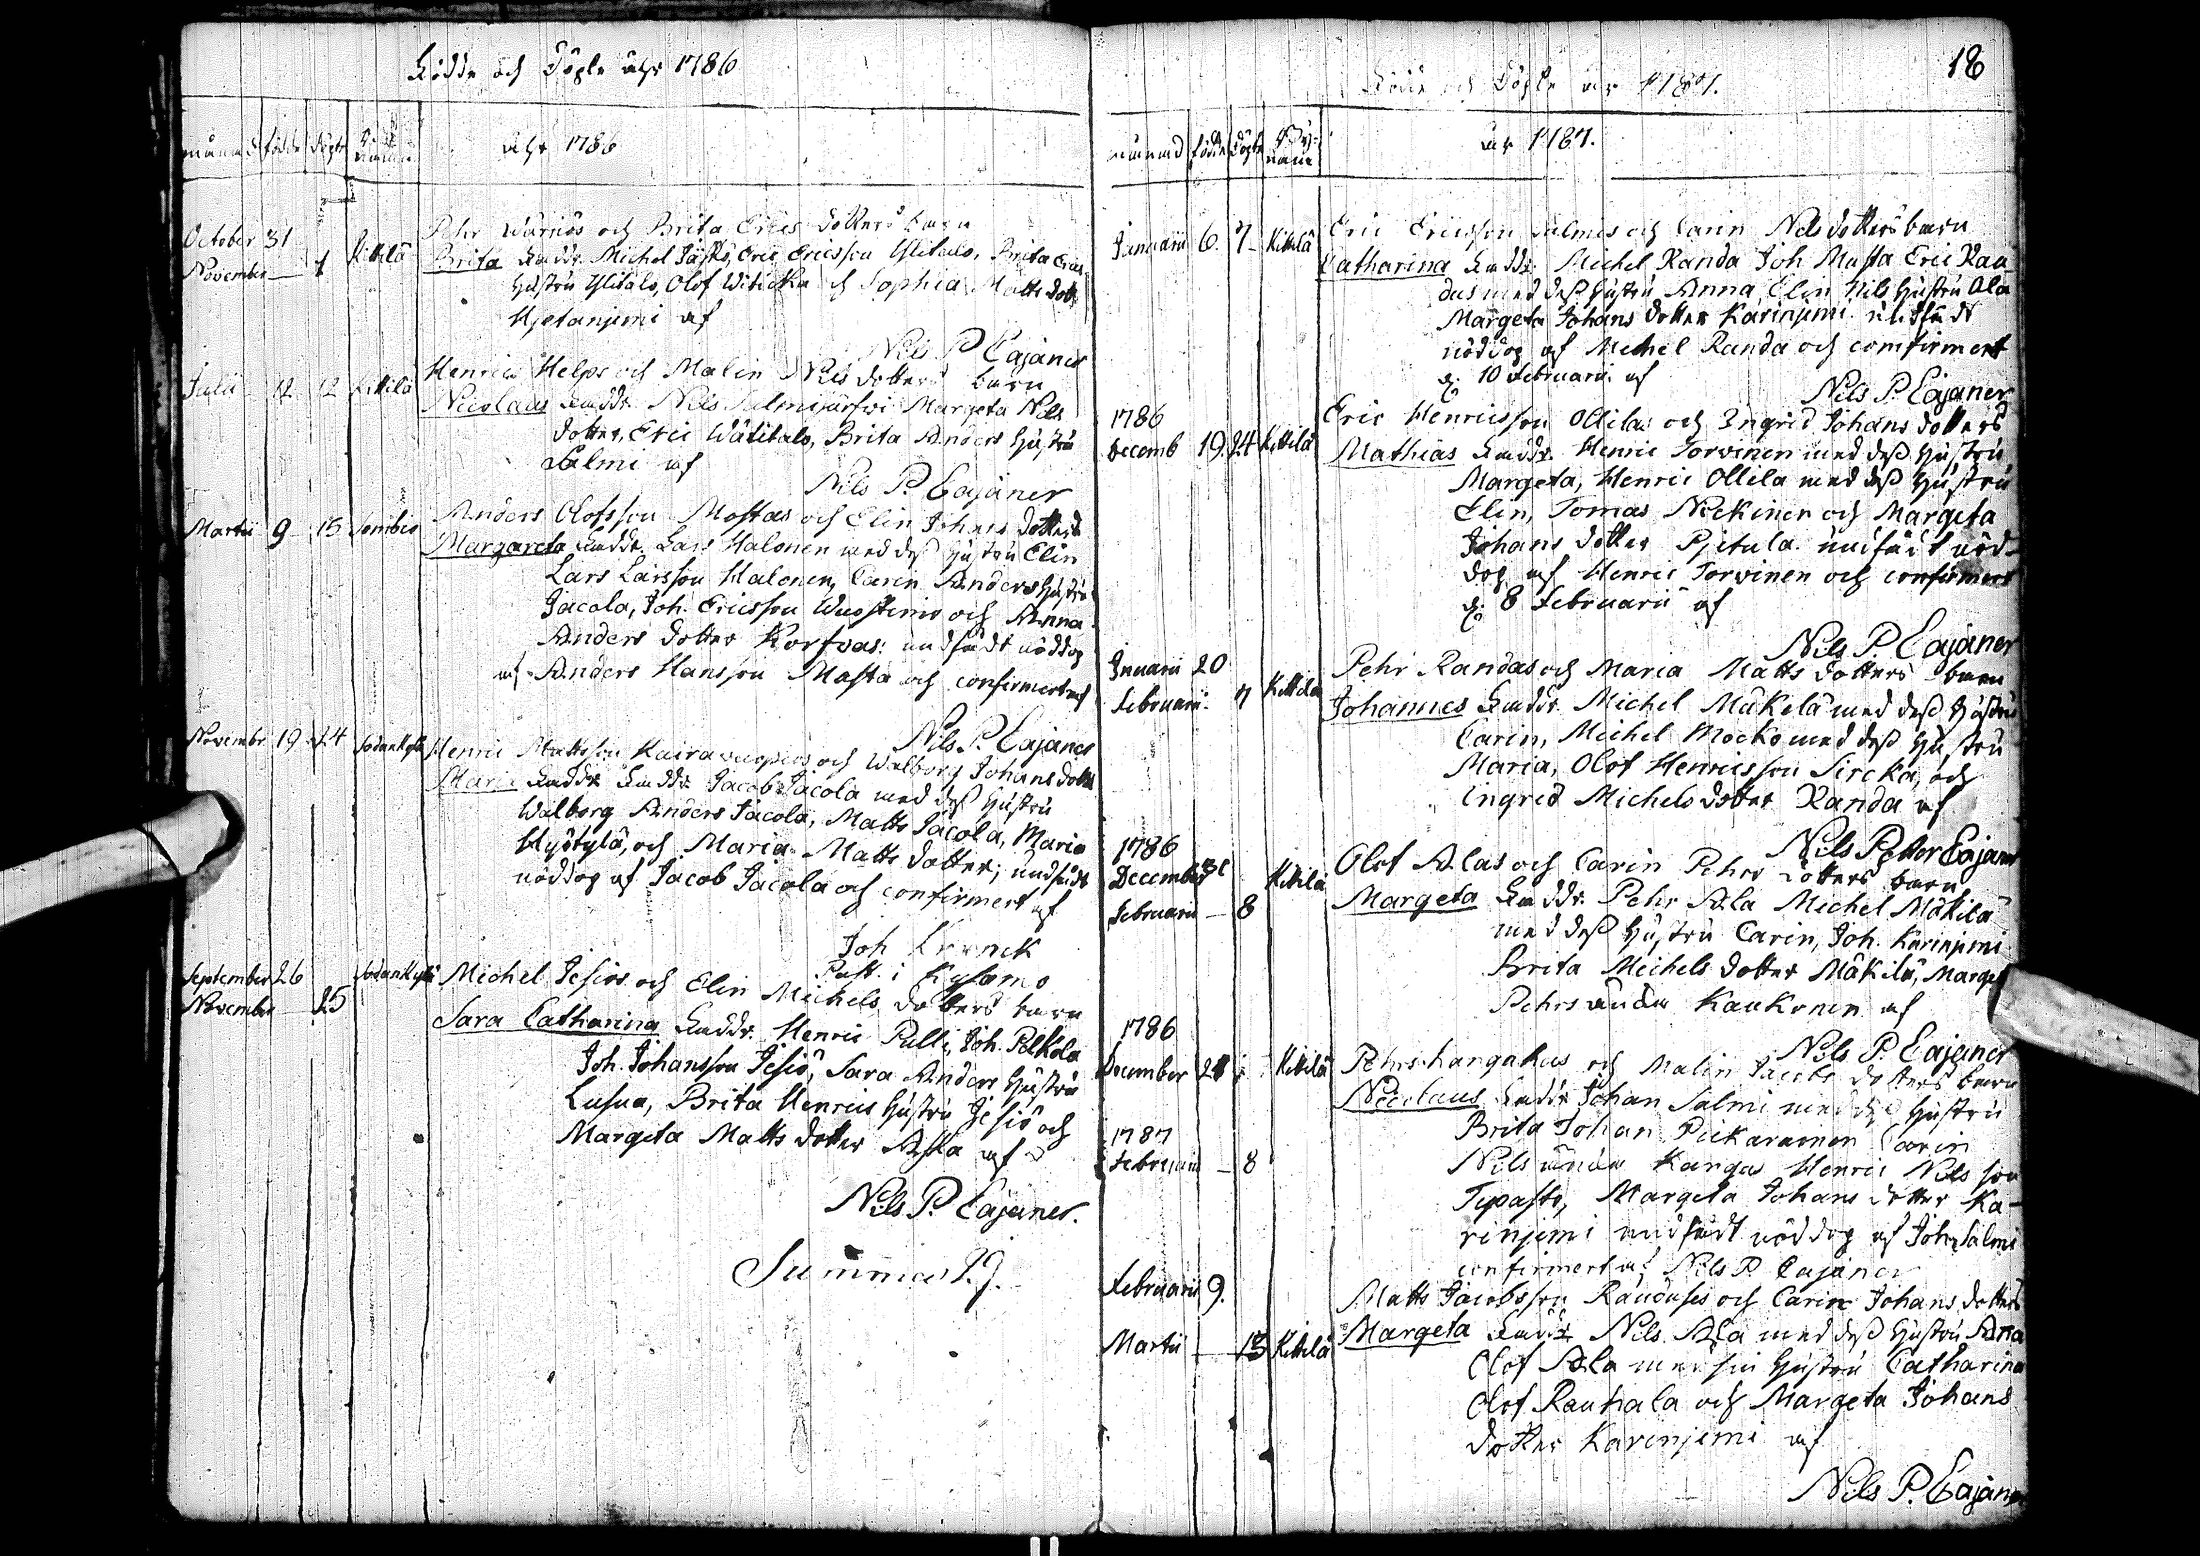 Födde och Döpte åhr 1786
månad födde döpte By namn
åhr 1786
October 31
November 1 Kittilä
Pehr Wärriös och Brita Erics dotters barn
Brita faddr. Michel Jäskö, Eric Ericsson Ylitalo, Brita Erics
hustru Ylitalo, Olof och Sophia Matts dotter
Hjetanjemi af
Nils P Cajaner
Julii 12 12 Kittilä
Henric Helps och Malin Nils dotters barn
Nicolaus faddr. Nils Salmijärfwi Margeta Nils
dotter, Eric Wälitalo, Brita Anders hustru
Salmi af
Nils P. Cajaner
Martii 9 15 Sombio
Anders Olofsson Mostas och Elin Johans dotters
Margareta faddr. Lars Halonen med dess hustru Elin
Lars Larsson Halonen, Carin Anders hustru
Jacola, Joh. Ericsson och Anna
Anders dotter Korfvas: undfådt nöddop
af Anders Hansson Mosta och confirmert af
Nils P. Cajaner
Novembr 19 24 Sodankylä
Henric Mattsson och Walborg Johans dotter
Maria faddr. faddr. Jacob Jacola med dess hustru
Walborg Anders Jacola, Matts Jacola, Maria
Hyötylä, och Maria Matts dotter; undfådt
nöddop af Jacob Jacola och confirmert af
Joh
Past. i Kusamo
September 26
November 25 Sodankylä
Michel Jesiös och Elin Michels dotters barn
Sara Catharina faddr. Henric Pulli, Joh. Pelkola
Joh. Johansson Jesiö, Sara Anders hustru
Lusua, Brita Henrics hustru Jesiö och
Margeta Matts dotter Aska af
Nils P. Cajaner.
Summa 29.
18
Födde och Döpte åhr 1787.
månad födde döpte By namn
åhr 1787.
Januarii 6. 7 Kittilä
Eric Ericsson Salmis och Carin Nils dotters barn
Catharina faddr. Michel Randa Joh. Musta Eric Rau
dus med dess hustru Anna, Elin Nils hustru Ala
Margeta Johans dotter Karinjemi undfådt
nöddop af Michel Randa och comfirmert
d. 10 Februarii af
Nils P. Cajaner
1786
Decemb 19. 24 Kittilä
Eric Henricsson Ollilas och Ingrid Johans dotters
Mathias faddr. Henric Torvinen med dess hustru
Margeta, Henric Ollila med dess hustru
Elin, Tomas Nickinen och Margeta
Johans dotter Pjetula undfådt nöd-
dop af Henric Torvinen och confirmert
d. 8 Februarii af
Nils P. Cajaner
Januarii 20
Februarii 7 Kittilä
Pehr Randas och Maria Matts dotters barn
Johannes faddr. Michel Mäkelä med dess hustru
Carin, Michel Mocko med dess hustru
Maria, Olof Henricsson Sircka, och
Ingrid Michels dotter Randa af
Nils Petter Cajaner
1786
December 31
Februarii 8 Kittilä
Olof Alas och Carin Pehrs dotters barn
Margeta faddr. Pehr Ala Michel Mäkilä
med dess hustru Carin, Joh. Karinjemi
Brita Michels dotter Mäkilä, Marget
Pehrs änka Kaukonen af
Nils P. Cajaner
1786
December 21 Kittilä
1787
Februarii 8
Pehrs och Malin Jacobs dotters barn
Nicolaus faddr. Johan Salmi med dess hustru
Brita Johan Carin
Nils änka Kangas Henric Nilsson
Margeta Johans dotter Ka-
rinjemi undfådt nöddop af Joh. Salmi
confirmert af Nils P. Cajaner
Februarii 9.
Martii 13 Kittilä
Matts Jacobsson Rauduses och Carin Johans dotters
Margeta faddr. Nils Ala med dess hustru Anna
Olof Ala med sin hustru Catharina
Olof Rauhala och Margeta Johans
dotter Karinjemi af
Nils P. Cajaner